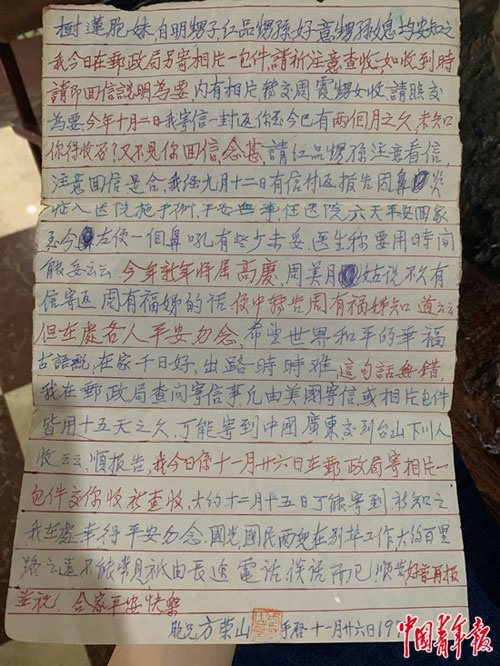 樹蓮胞妹自明甥子紅品甥孫好意甥孫息均安知之
我今日在郵政局另寄相片一包件，請祈注意查收，如收到時
請即回信說明為要 內有相片轉交周賢甥女收，請照交
為要，今年十月二日我寄信一封返你至今已有兩個月之久，未知
你件收否了又不見你回信，念甚，請紅品甥孫注意看信，
注意回信是合，我在九月十二日有信付返報告因鼻炎
症入医院施手術，平安無事，住医院六天平安回家
至今左便一個鼻吼有些少未妥，医生称要用時間
能妥云云 今年新年將居高慶，周美月姑說不久有
信寄返周有福姊的話，便中轉告周有福姊知道云云
但在處各人平安勿念，希望世界和平的幸福
古話說，在家千日好，出路一時難，這句話無錯，
我在郵政局查问寄信事，凡由美國寄信，或相片包件
皆用十五天之久，丁能寄到中國廣東交到台山下川人
收云云，順报告，我今日係十一月廿六日在郵政局寄相片一
包件交你收祈查收，大約十二月十五日丁能寄到祈知之
我在處幸得平安勿念，國光國民两兒在别埠工作大約百里
路之遠不能常見祇由長途電話，談話而已，順告好音再報
並祝！合家平安快樂
胞兄方榮山 手啓十一月廿六日19
中國青年报